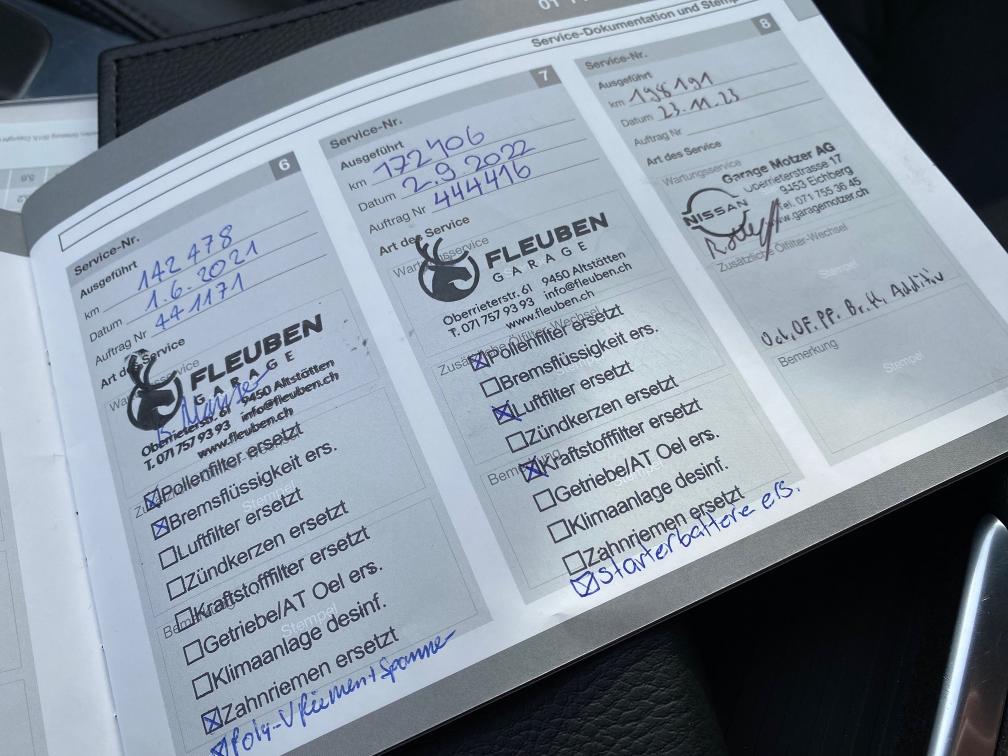 Service-Dokumentation und Stemp
6
Service-Nr.
Ausgeführt
km 142 478
Datum 1.6.2021
Auftrag Nr 441171
Art des Service
FLEUBEN
GARAGE
Oberrieterstr. 61 9450 Altstätten
T. 071 757 93 93 info@fleuben.ch
www.fleuben.ch
Pollenfilter ersetzt
Bremsflüssigkeit ers.
Luftfilter ersetzt
Stempel
Zündkerzen ersetzt
Kraftstofffilter ersetzt
Getriebe/AT Oel ers.
Stempel
Klimaanlage desinf.
Zahnriemen ersetzt
Poly-V Riemen+Spanner
7
Service-Nr.
Ausgeführt
km 172406
Datum 2.9.2022
Auftrag Nr 444416
Art des Service
FLEUBEN
GARAGE
Oberrieterstr. 61 9450 Altstätten
T. 071 757 93 93 info@fleuben.ch
www.fleuben.ch
Zusätzliche Ölfilter-Wechsel
Pollenfilter ersetzt
Bremsflüssigkeit ers.
Luftfilter ersetzt
Zündkerzen ersetzt
Kraftstofffilter ersetzt
Getriebe/AT Oel ers.
Klimaanlage desinf.
Zahnriemen ersetzt
Starterbatterie ers.
8
Service-Nr.
Ausgeführt
km 198191
Datum 23.11.23
Auftrag Nr
Art des Service
Wartungsservice
Garage Motzer AG
Oberrieterstrasse 17
9453 Eichberg
Tel. 071 755 36 45
www.garagemotzer.ch
NISSAN
Zusätzliche Ölfilter-Wechsel
Stempel
Additiv
Bemerkung
Stempel